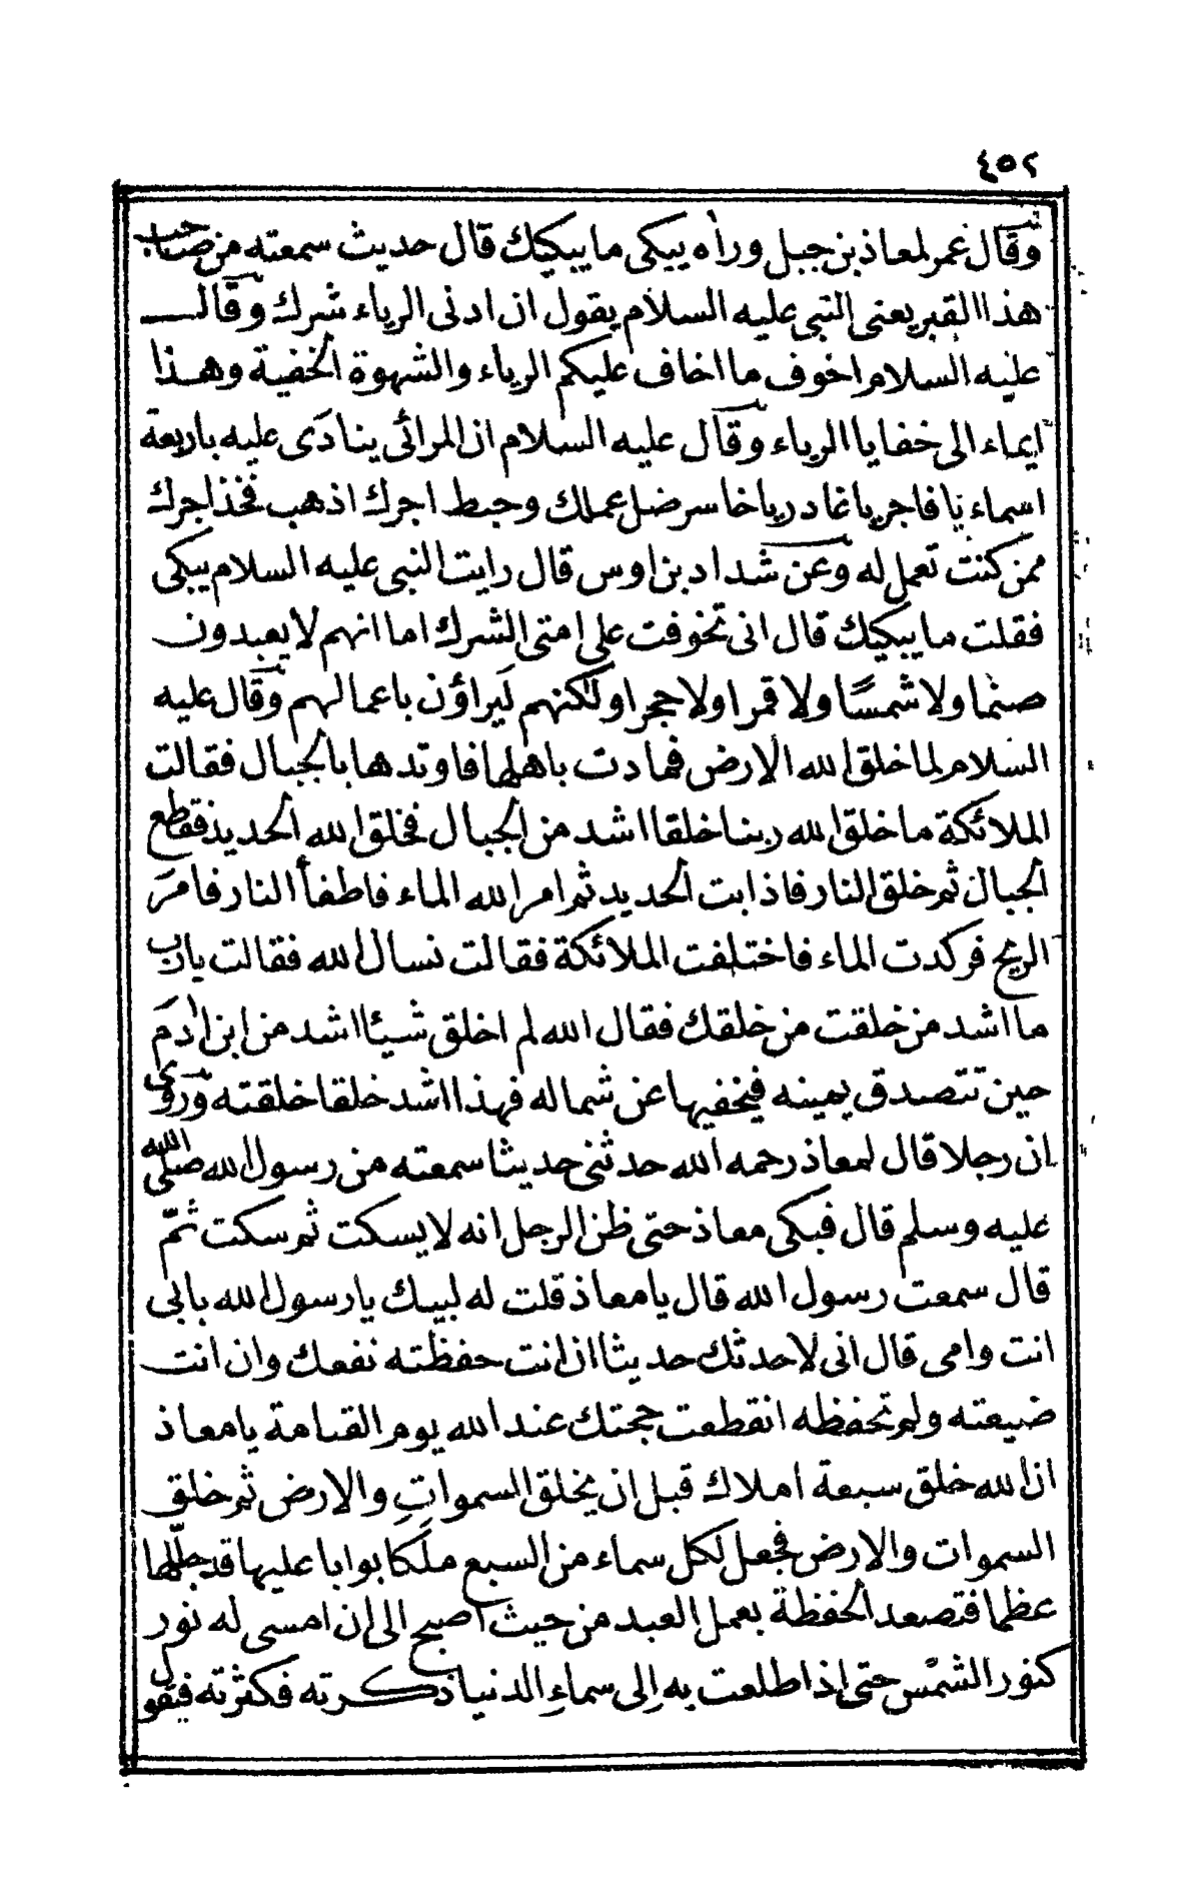 ٤٥٢
وقال عمر لمعاذ بن جبل ورأه يبكى ما يبكيك قال حديث سمعته من صاحب
هذا القبر يعنى النبى عليه السلام يقول ان ادنى الرياء شرك وقال
عليه السلام اخوف ما اخاف عليكم الرياء والشهوة الخفية وهذا
ايماء الى خفايا الرياء وقال عليه السلام ان المرائى ينادى عليه باربعة
اسماء يا فاجر يا غادر يا خاسر ضل عملك وحبط اجرك اذهب فخذ اجرك
ممن كنت تعمل له وعن شداد بن اوس قال رايت النبى عليه السلام يبكى
فقلت ما يبكيك قال انى تخوفت على امتى الشرك اما انهم لا يعبدون
صنما ولا شمسًا ولا قمرا ولا حجرا ولكنهم يَراؤن باعمالهم وقال عليه
السلام لما خلق الله الارض فمادت باهلها فاوتدها بالجبال فقالت
الملائكة ما خلق الله ربنا خلقا اشد من الجبال فخلق الله الحديد فقطع
الجبال ثم خلق النار فاذابت الحديد ثم امر الله الماء فاطفأ النار فامر
الريح فركدت الماء فاختلفت الملائكة فقالت نسال الله فقالت يا رب
ما اشد من خلقت من خلقك فقال الله لم اخلق شيئا اشد من ابن ادم
حين تتصدق بيمينه فيخفيها عن شماله فهذا اشد خلقا خلقته وروى
ان رجلا قال لمعاذ رحمه الله حدثنى حديثا سمعته من رسول الله صلى الله
عليه وسلم قال فبكى معاذ حتى ظن الرجل انه لا يسكت ثم سكت ثمّ
قال سمعت رسول الله قال يا معاذ قلت له لبيك يا رسول الله بابى
انت وامى قال انى لاحدثك حديثا ان انت حفظته نفعك وان انت
ضيعته ولم تحفظه انقطعت حجتك عند الله يوم القيامة يا معاذ
ان الله خلق سبعة املاك قبل ان يخلق السمواتِ والارض ثم خلق
السموات والارض فجعل لكل سماء من السبع ملَكا بوابا عليها قد جلّلها
عظما فتصعد الحفظة بعمل العبد من حيث اصبح الى ان امسى له نور
كنور الشمس حتى اذا طلعت به اِلى سماءِ الدنيا ذكرته فكثرته فيقول